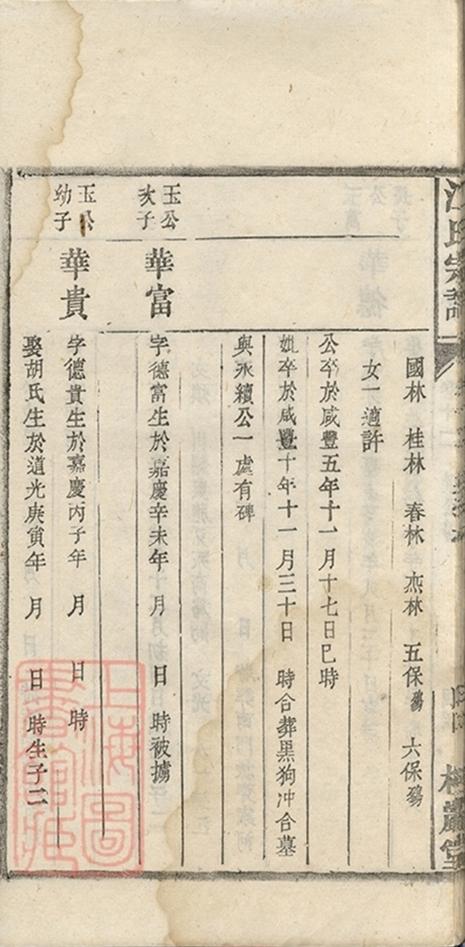 江氏宗譜
國林　桂林　春林　燕林　五保殤　六保殤
女一適許
公卒於咸豐五年十一月十七日巳時
妣卒於咸豐十年十一月三十日　時合葬黑狗冲合墓
與永續公一處有碑
玉公次子　華富　字德富生於嘉慶辛未年　月　日　時被擄
玉公幼子　華貴　字德貴生於嘉慶丙子年　月　日　時
娶胡氏生於道光庚寅年　月　日　時生子二
上海圖書館藏